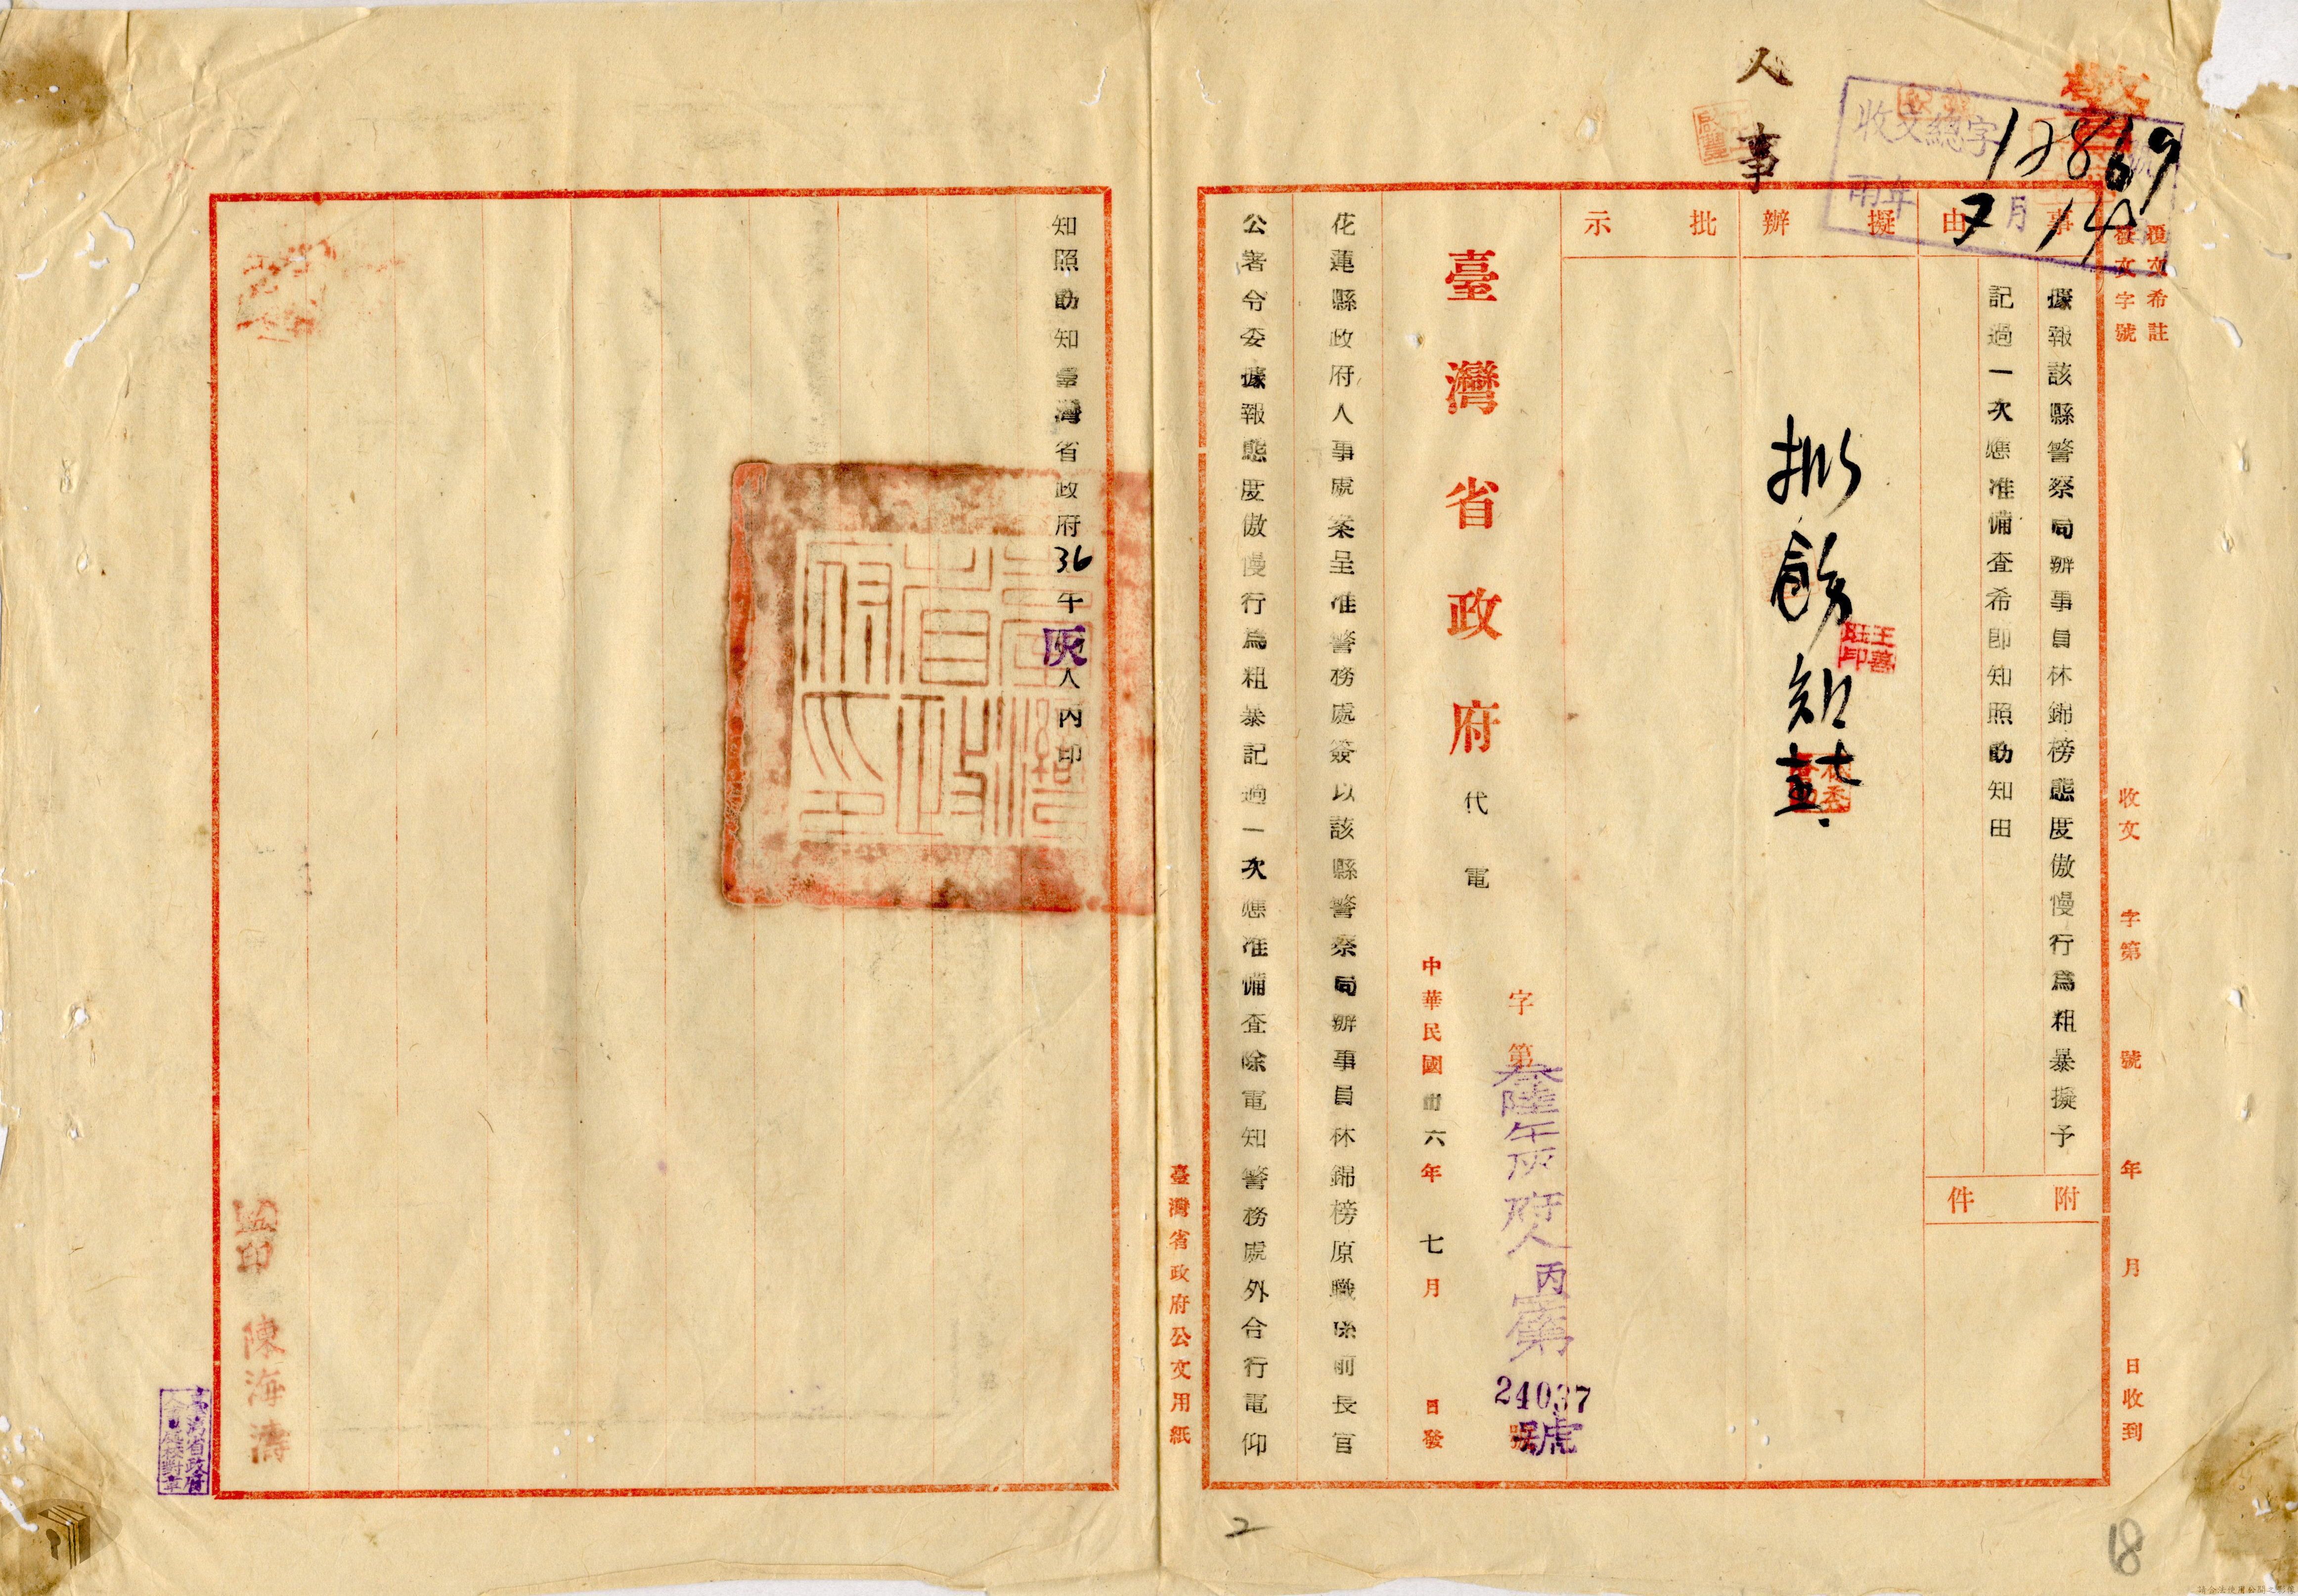 人事
收文總字 12869 號
年 7月14
復文希註
發文字號
收文 字第 號 年 月 日收到
事由
據報該縣警察局辦事員林錦榜態度傲慢行為粗暴擬予
記過一次應准備查希即知照飭知由
附件
擬辦
批示
字第
參陸午灰府人丙第
24037
號
臺灣省政府代電
中華民國卅六年七月 日發
花蓮縣政府人事處案呈准警務處簽以該縣警察局辦事員林錦榜原職係前長官
公署令委據報態度傲慢行為粗暴記過一次應准備查除電知警務處外合行電仰
臺灣省政府公文用紙
知照飭知臺灣省政府36午灰人丙印
臺灣省政府印
監印 陳海濤
2
18